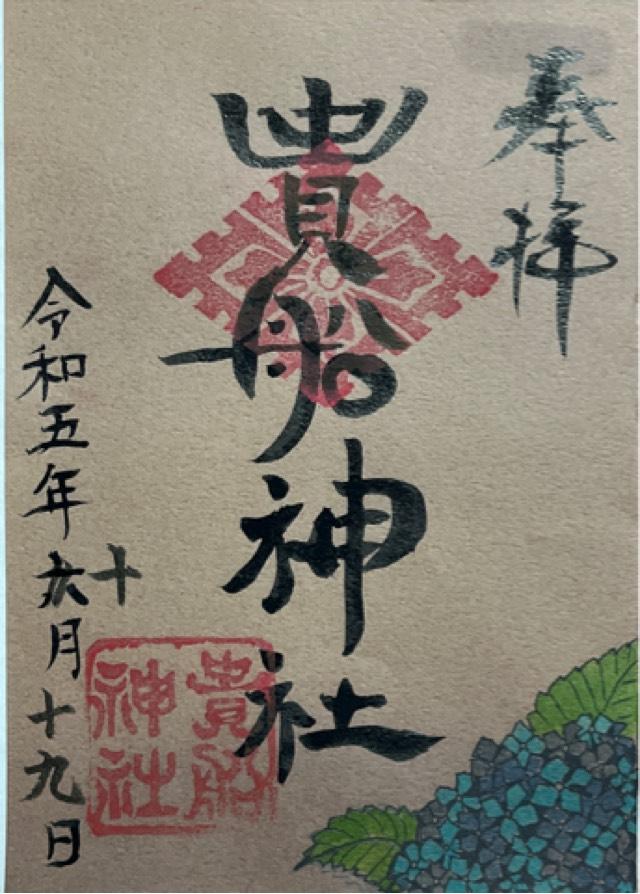 奉拝
貴船神社
令和五年六月十九日
十
貴船神社